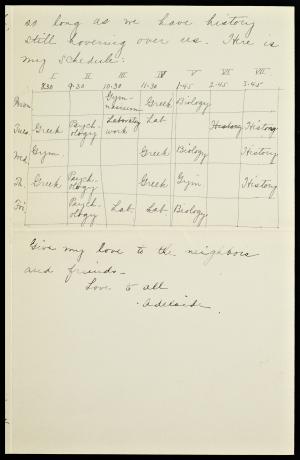 as long as we have history
still hovering over us. Here is
my schedule:
I II III IV V VI VII
8.30 9-30 10.30 11-30 1-45 2-45 3-45
Mon. Gym-nasium Greek Biology
Tues Greek Psych-ology Laboratory work Lab History History
Wed. Gym. Greek Biology History
Th. Greek Psych-ology Greek Gym History
Fri Psych-ology Lab. Lab Biology
Give my love to the neighbors
and friends-
Love to all
Adelaide.